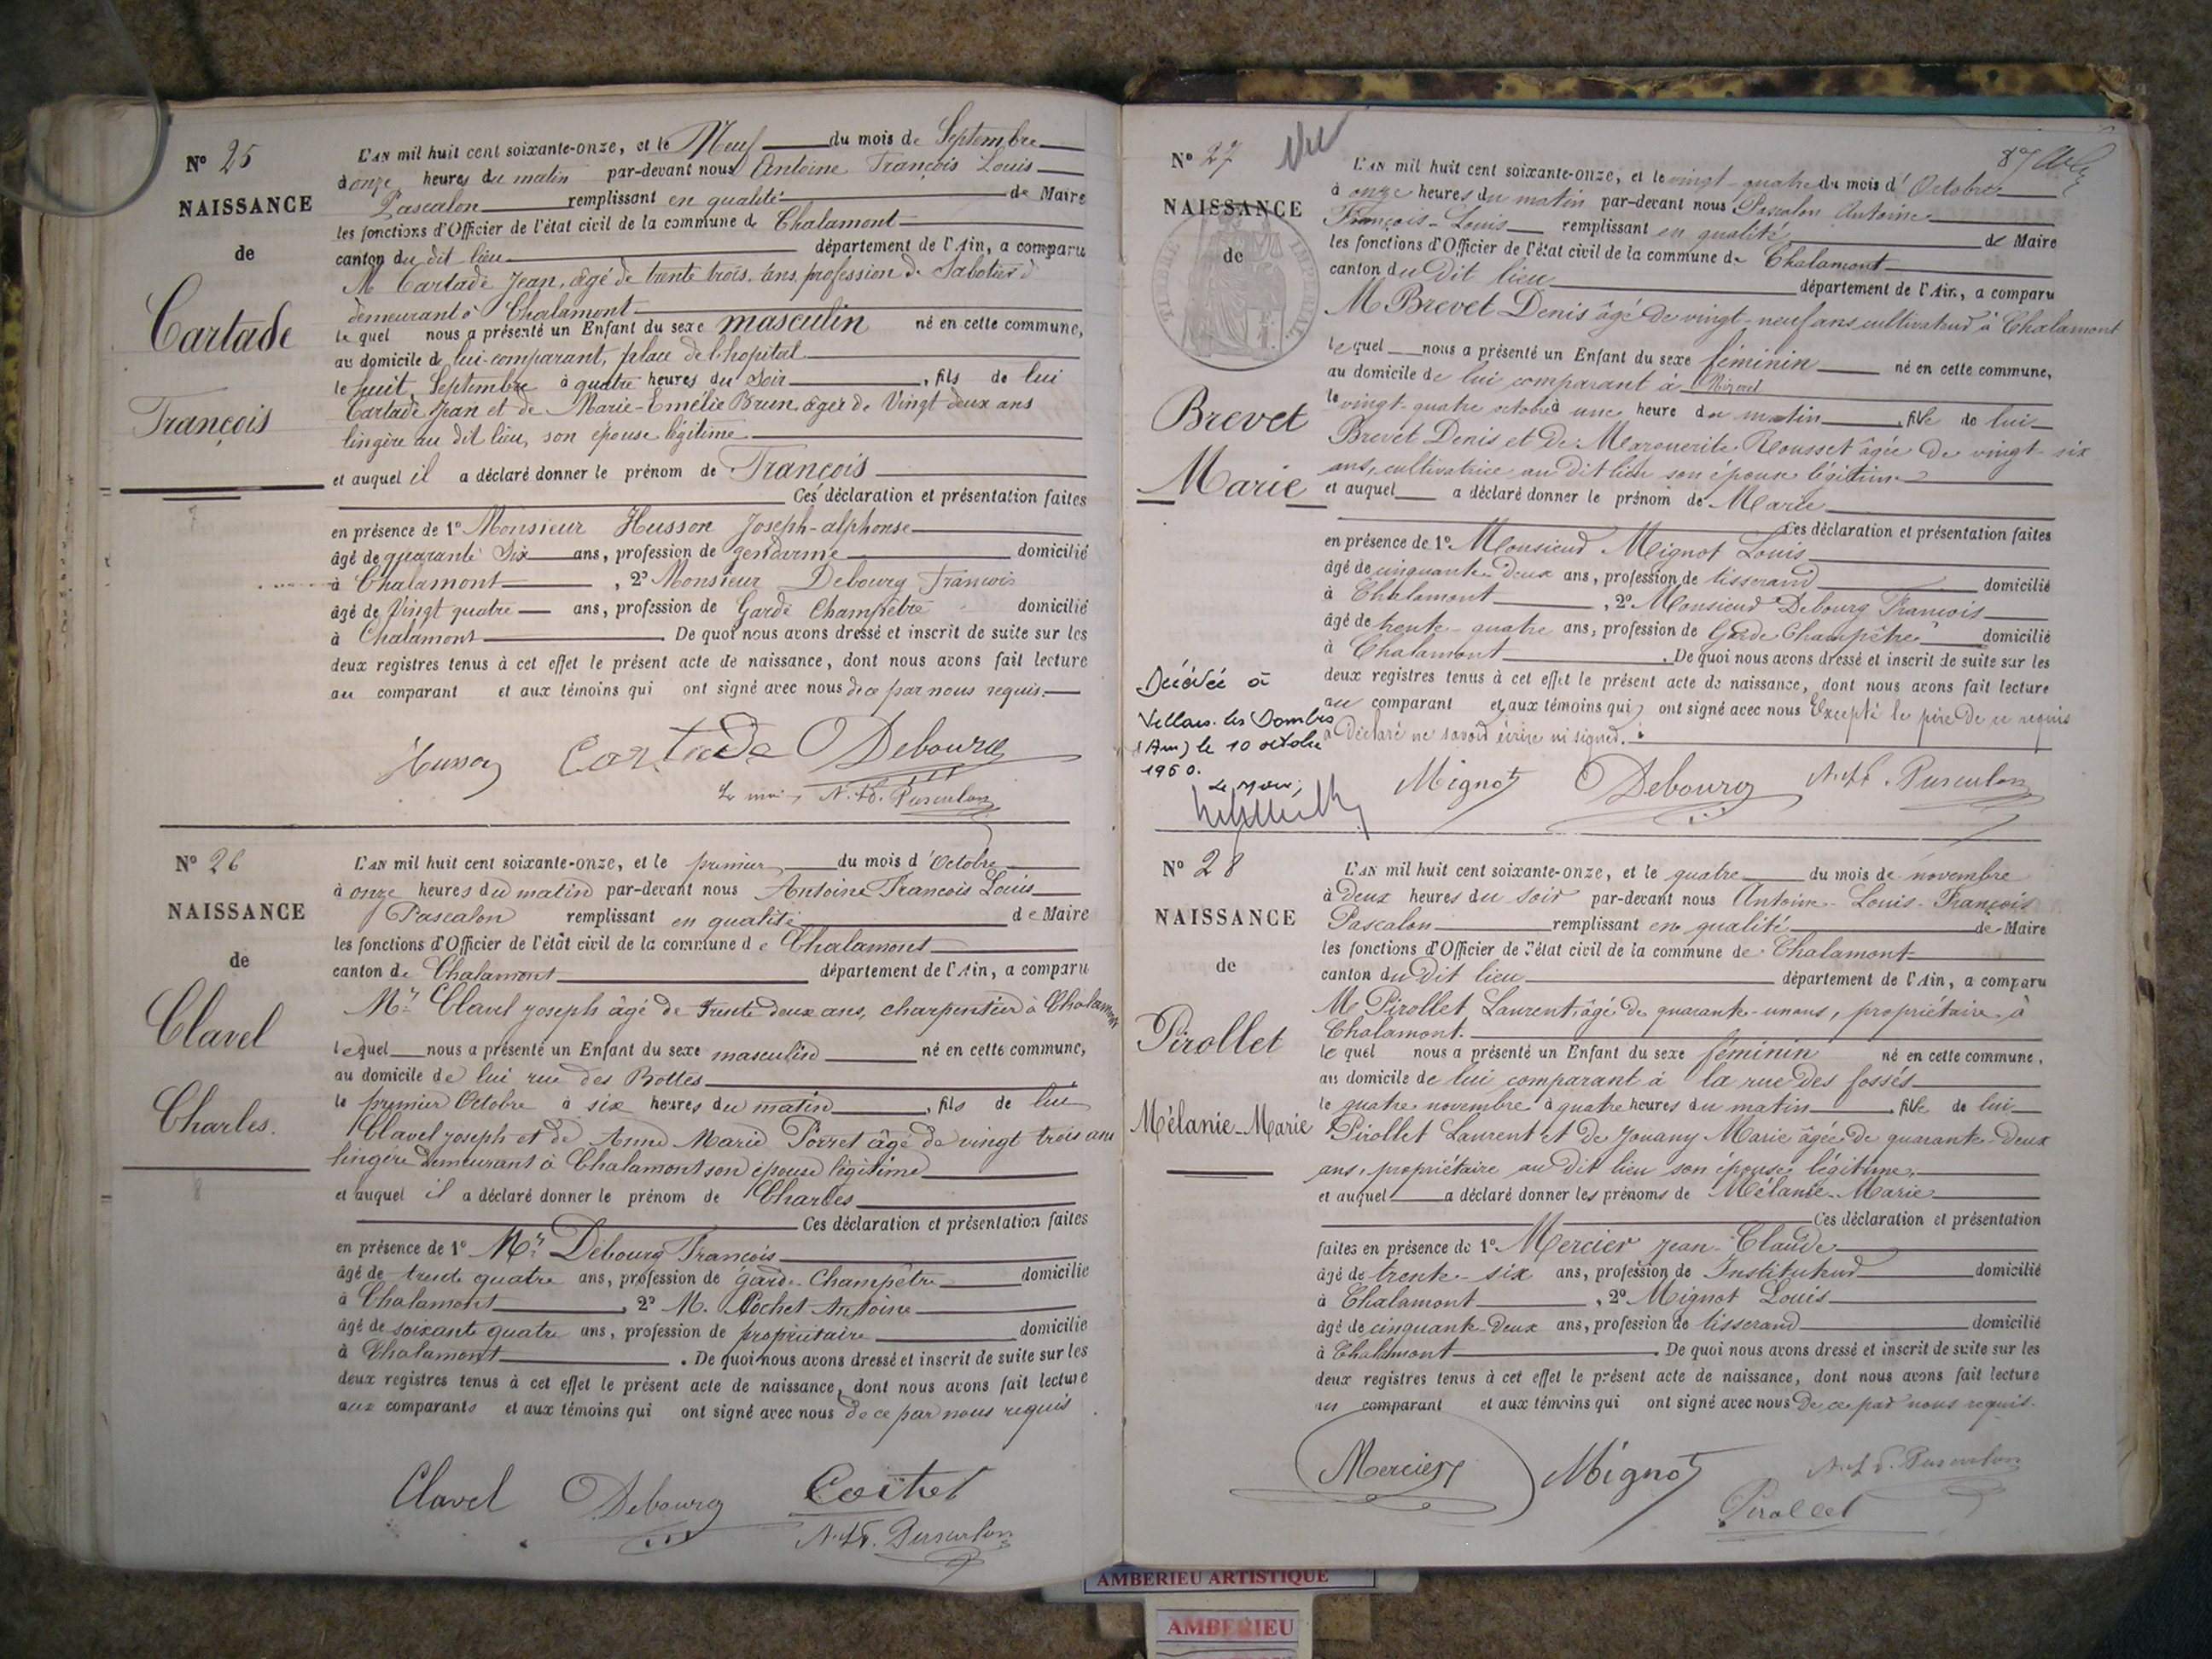 N° 25
NAISSANCE
de
Cartade
François
L'AN mil huit cent soixante-onze, et le Neuf du mois de Septembre
à onze heures du matin par-devant nous Antoine François Louis
Pascalon remplissant en qualité de Maire
les fonctions d'Officier de l'état civil de la commune de Chalamont
canton du dit lieu département de l'Ain, a comparu
M Cartade Jean, âgé de trente trois ans, profession de Sabotier
demeurant à Chalamont
lequel nous a présenté un Enfant du sexe masculin né en cette commune,
au domicile de lui comparant, place de l'hopital
le huit Septembre à quatre heures du Soir, fils de lui
Cartade Jean et de Marie-Emélie Brun âgée de Vingt deux ans
lingère au dit lieu, son épouse légitime
et auquel il a déclaré donner le prénom de François
Ces déclaration et présentation faites
en présence de 1° Monsieur Husson Joseph-alphonse
âgé de quarante Six ans, profession de gendarme domicilié
à Chalamont, 2° Monsieur Debourg François
âgé de Vingt quatre ans, profession de Garde Champêtre domicilié
à Chalamont. De quoi nous avons dressé et inscrit de suite sur les
deux registres tenus à cet effet le présent acte de naissance, dont nous avons fait lecture
au comparant et aux témoins qui ont signé avec nous de ce par nous requis.
Husson Cartade Debourg
Le maire, A. f. L. Pascalon
N° 26
NAISSANCE
de
Clavel
Charles.
L'AN mil huit cent soixante-onze, et le premier du mois d'Octobre
à onze heures du matin par-devant nous Antoine François Louis
Pascalon remplissant en qualité de Maire
les fonctions d'Officier de l'état civil de la commune de Chalamont
canton de Chalamont département de l'Ain, a comparu
Mr Clavel joseph âgé de trente deux ans, charpentier à Chalamont
lequel nous a présenté un Enfant du sexe masculin né en cette commune,
au domicile de lui rue des Bottes
le premier Octobre à six heures du matin, fils de lui
Clavel joseph et de Anne Marie Porret âgé de vingt trois ans
lingère demeurant à Chalamont son épouse légitime
et auquel il a déclaré donner le prénom de Charles
Ces déclaration et présentation faites
en présence de 1° Mr Debourg François
âgé de trente quatre ans, profession de garde-Champêtre domicilié
à Chalamont, 2° M. Cochet Antoine
âgé de soixante quatre ans, profession de propriétaire domicilié
à Chalamont. De quoi nous avons dressé et inscrit de suite sur les
deux registres tenus à cet effet le présent acte de naissance, dont nous avons fait lecture
aux comparants et aux témoins qui ont signé avec nous de ce par nous requis
Clavel Debourg
A. f. L. Pascalon
N° 27
Vu
NAISSANCE
de
Brevet
Marie
L'AN mil huit cent soixante-onze, et le vingt-quatre du mois d'Octobre
à onze heures du matin par-devant nous Pascalon Antoine
François-Louis remplissant en qualité de Maire
les fonctions d'Officier de l'état civil de la commune de Chalamont
canton du Dit lieu département de l'Ain, a comparu
M Brevet Denis âgé de vingt-neuf ans cultivateur à Chalamont
lequel nous a présenté un Enfant du sexe féminin né en cette commune,
au domicile de lui comparant à
le vingt-quatre octobre à une heure du matin, fille de lui
Brevet Denis et de Marguerite Rousset âgée de vingt-six
ans, cultivatrice au dit lieu son épouse légitime
et auquel a déclaré donner le prénom de Marie
Ces déclaration et présentation faites
en présence de 1° Monsieur Mignot Louis
âgé de cinquante-Deux ans, profession de tisserand domicilié
à Chalamont, 2° Monsieur Debourg François
âgé de trente-quatre ans, profession de Garde Champêtre domicilié
à Chalamont. De quoi nous avons dressé et inscrit de suite sur les
deux registres tenus à cet effet le présent acte de naissance, dont nous avons fait lecture
au comparant et aux témoins qui ont signé avec nous Excepté le père De ce requis
a Déclaré ne savoir écrire ni signer.
Mignot Debourg A. f. L. Pascalon
Décédée à
Villars-les Dombes
(Ain) le 10 octobre
1950.
Le Maire,
N° 28
NAISSANCE
de
Pirollet
Mélanie-Marie
L'AN mil huit cent soixante-onze, et le quatre du mois de novembre
à Deux heures du soir par-devant nous Antoine-Louis-François
Pascalon remplissant en qualité de Maire
les fonctions d'Officier de l'état civil de la commune de Chalamont
canton du Dit lieu département de l'Ain, a comparu
M Pirollet Laurent, âgé de quarante-un ans, propriétaire à
Chalamont.
lequel nous a présenté un Enfant du sexe féminin né en cette commune,
au domicile de lui comparant à la rue Des fossés
le quatre novembre à quatre heures du matin, fille de lui
Pirollet Laurent et De Jouany Marie âgée de quarante-Deux
ans, propriétaire au Dit lieu son épouse légitime,
et auquel a déclaré donner les prénoms de Mélanie-Marie
Ces déclaration et présentation
faites en présence de 1° Mercier Jean-Claude
âgé de trente-six ans, profession de Instituteur domicilié
à Chalamont, 2° Mignot Louis
âgé de cinquante-Deux ans, profession de tisserand domicilié
à Chalamont. De quoi nous avons dressé et inscrit de suite sur les
deux registres tenus à cet effet le présent acte de naissance, dont nous avons fait lecture
au comparant et aux témoins qui ont signé avec nous De ce par nous requis.
Mercier Mignot A. f. L. Pascalon
Pirollet
AMBERIEU ARTISTIQUE
AMBERIEU